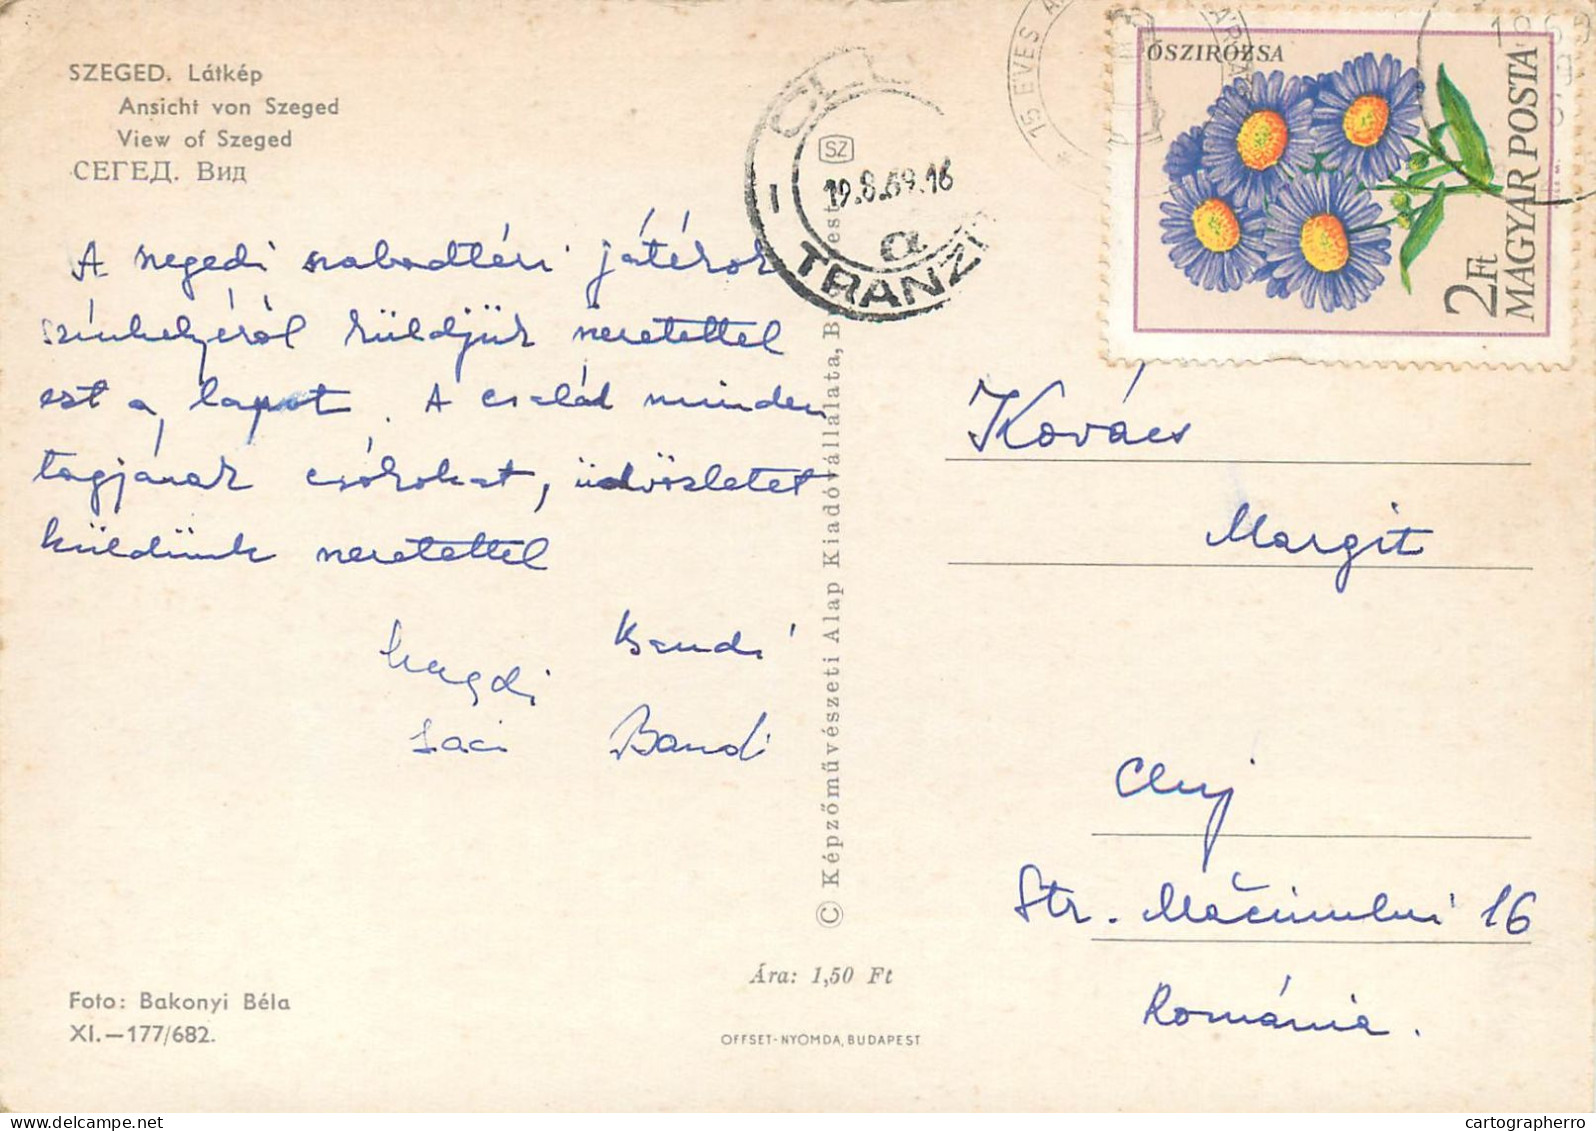 SZEGED. Látkép
Ansicht von Szeged
View of Szeged
СЕГЕД. Вид
A szegedi szabadtéri játékok
színhelyéről küldjük szeretettel
ezt a lapot. A család minden
tagjának csókokat, üdvözletet
küldünk szeretettel
Magdi Bandi
Laci Bandi
Foto: Bakonyi Béla
XI.—177/682.
© Képzőművészeti Alap Kiadóvállalata, B est
Ára: 1,50 Ft
OFFSET-NYOMDA, BUDAPEST
CL
SZ
19.8.69.16
TRANZI
15 ÉVES A
ŐSZIRÓZSA
2Ft
MAGYAR POSTA
Kovács
Margit
Cluj
Str. Măcinului 16
Románia.
cartographerro